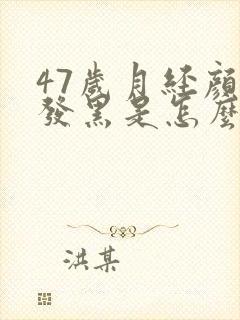 47歲月經顏
發黑是怎麼
洪某